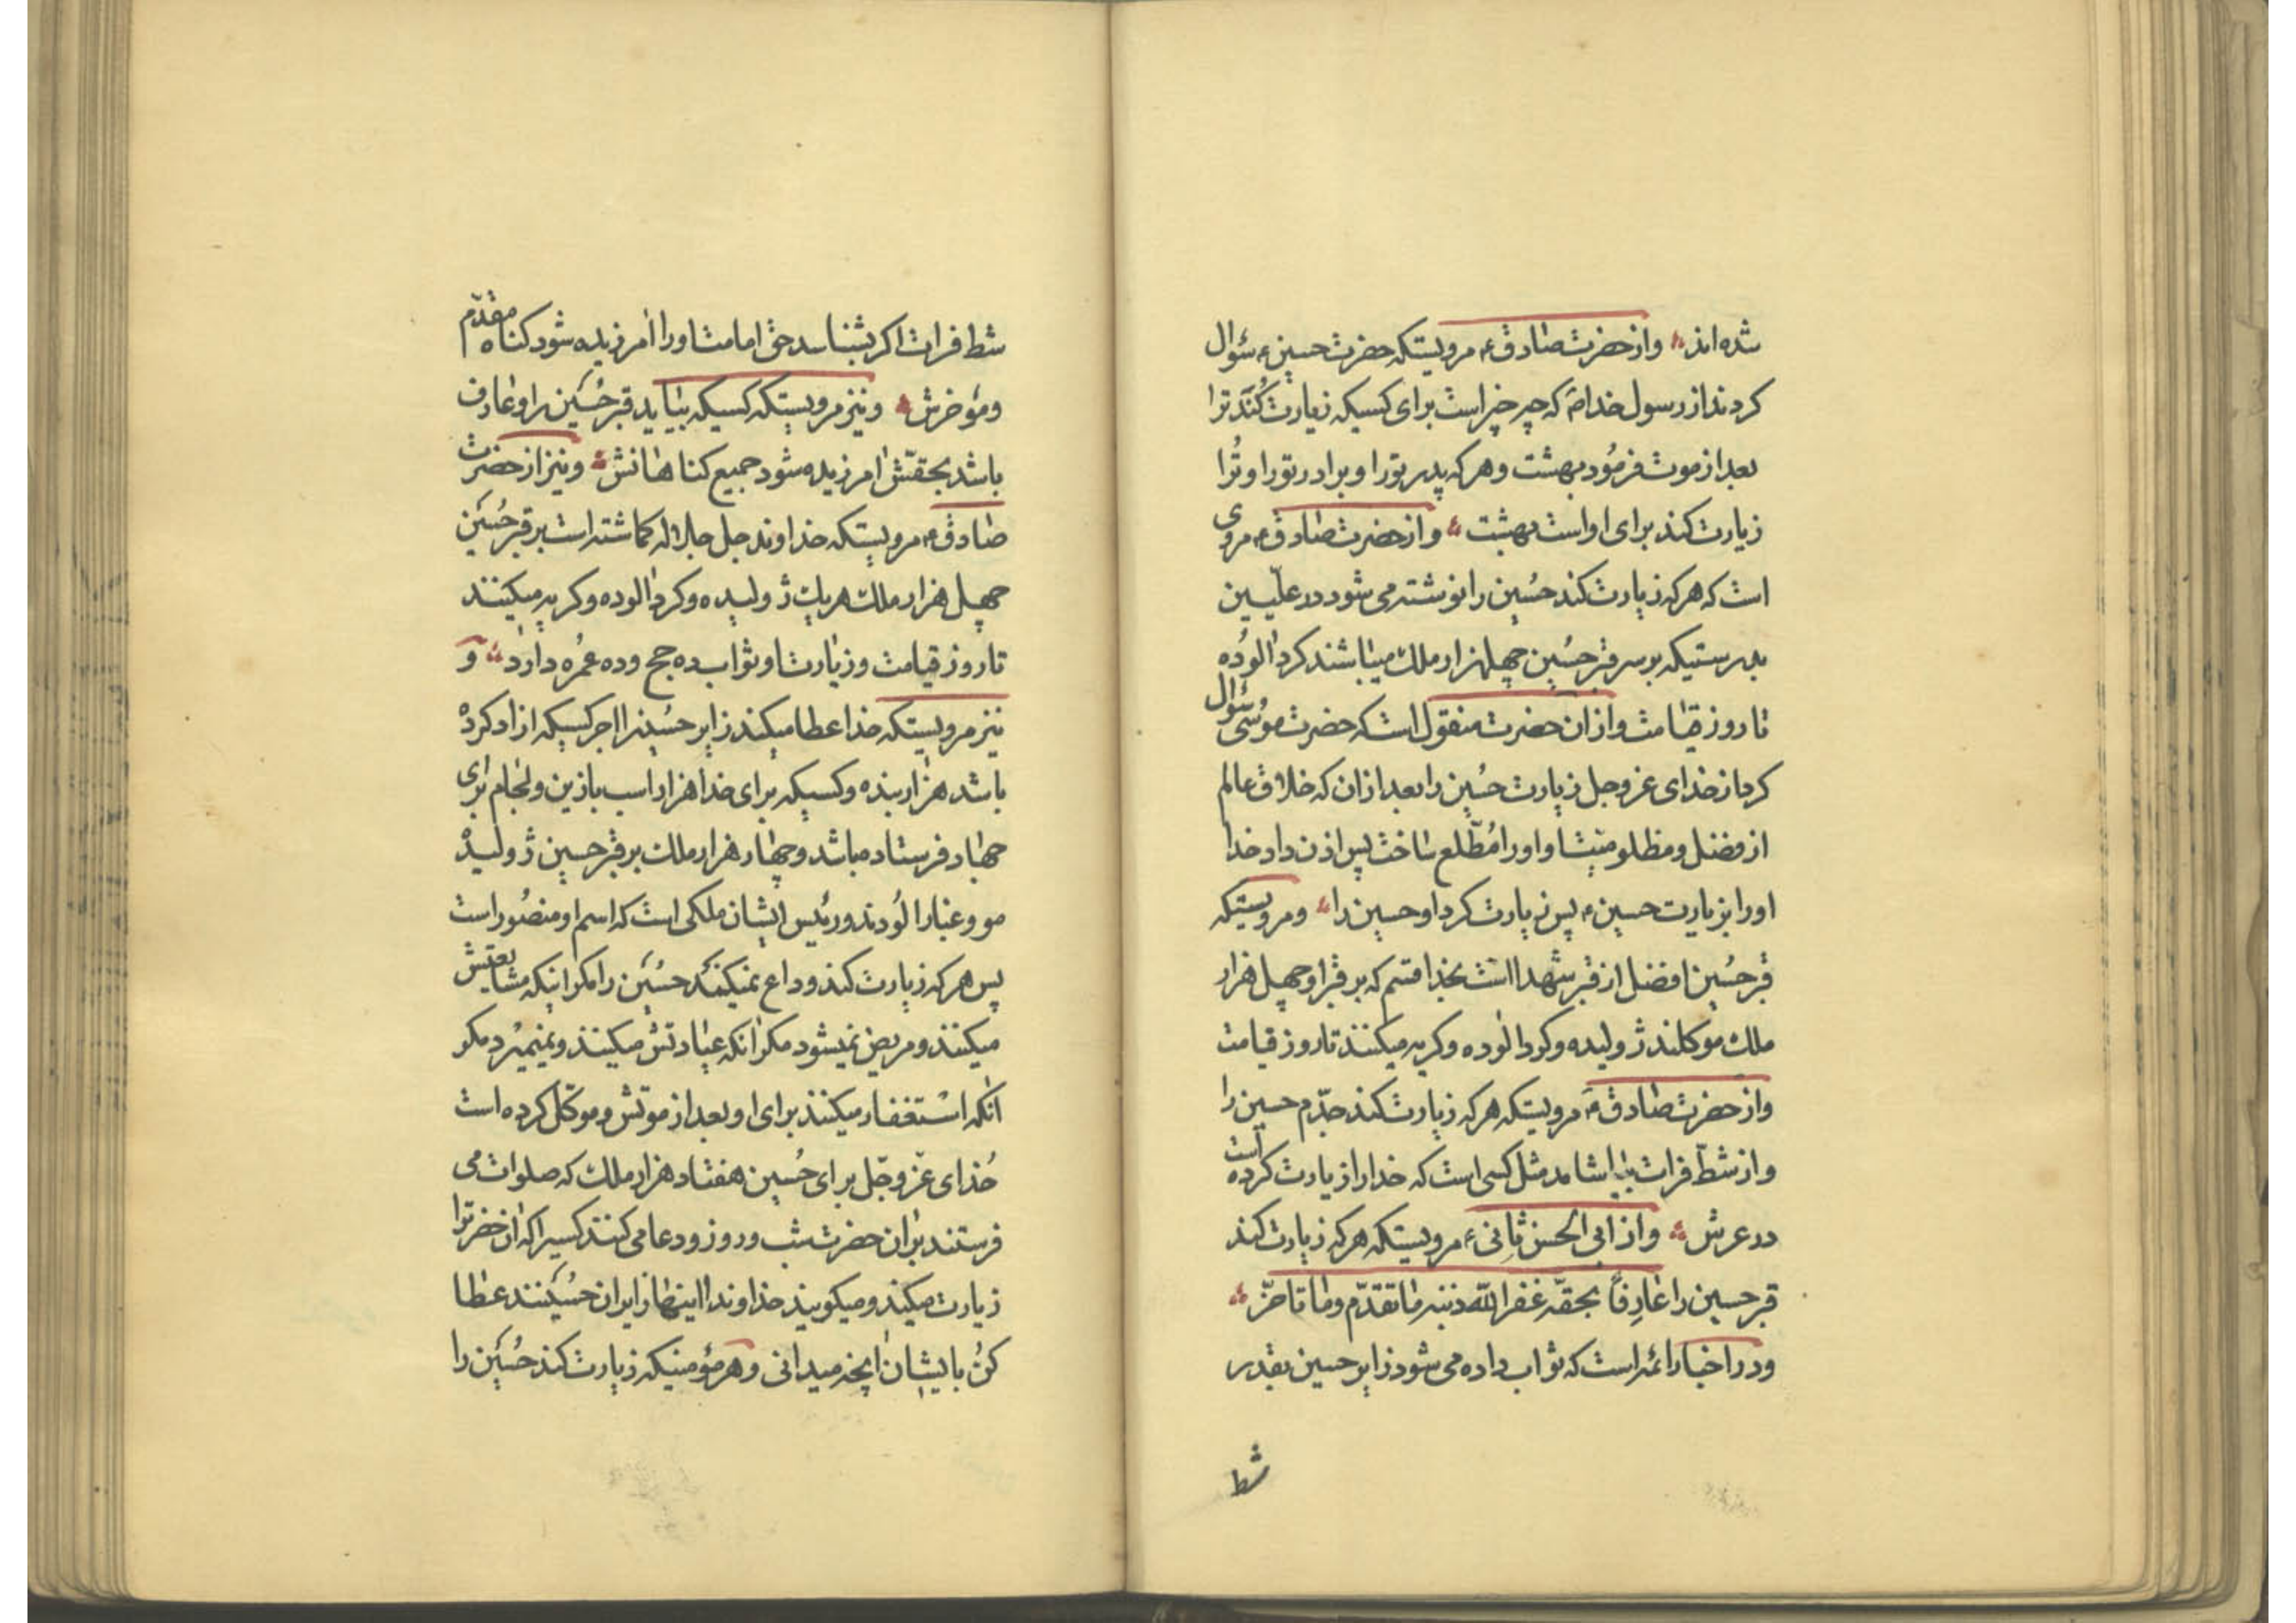 شده‌اند و از حضرت صادق ع مرویستکه حضرت حسین ع سؤال
کردند از رسول خدا م که چه خیر است برای کسیکه زیارت کُنَد ترا
بعد از موت فرمُود بهشت و هر که پدر تورا و برادر تورا و تُرا
زیارت کند برای او است بهشت و از حضرت صادق ع مروی
است که هر که زیارت کند حُسین را نوشته می شود در علّیین
بدرستیکه بر سر قبر حسُین چهلهزار ملک میباشند کرد الوُده
تا روز قیامت و از ان حضرت منقول است که حضرت موُسی سؤال
کرد از خدای عز و جل زیارت حُسین را بعد از ان که خلاق عالم
از فضل و مظلومیّت او او را مُطّلع ساخت پس اذن داد خدا
او را بزیارت حسین ع پس زیارت کرد او حسین را و مرویستکه
قبر حسُین افضل از قبر شهدا است بخدا قسم که بر قبر او چهل هزار
ملک موکلند ژولیده و کرد الوده و کریه میکنند تا روز قیامت
و از حضرت صادق ع مرویستکه هر که زیارت کند جدّم حسین را
و از شطّ فرات بیاشامد مثل کسی است که خدا را زیارت کرده است
در عرش و از ابی الحسن ثانی ع مرویستکه هر که زیارت کند
قبر حسین را عارِفاً بحقّه غفر الله ذنبه ما تقدّم و ما تاخّر
و در اخبار ائمه است که ثواب داده می شود زایر حسین بقدر
شط
شط فرات اکر بشناسد حق امامت او را امرزیده شود کناه مقدّم
و مؤخرش و نیز مرویستکه کسیکه بیاید قبر حُسین را و عارف
باشد بحقّش امرزیده شود جمیع کناهانش و نیز از حضرت
صادق ع مرویستکه خداوند جل جلاله کماشته است بر قبر حُسین
چهل هزار ملک هر یک ژولیده و کرد الوده و کریه میکنند
تا روز قیامت و زیارت او ثواب ده حج و ده عمُره دارد و
نیز مرویستکه خدا عطا میکند زایر حسُینرا اجر کسیکه ازاد کرده
باشد هزار بنده و کسیکه برای خدا هزار اسب با زین و لجام برای
جهاد فرستاده باشد و چهار هزار ملک بر قبر حسین ژولیده
مو و غبار الوُدند و رئیس ایشان ملکی است که اسم او منصُور است
پس هر که زیارت کند وداع نمیکند حسُین را مکر اینکه مشایعتش
میکنند و مریض نمیشود مکر انکه عیادتش میکنند و نمیمیرد مکر
انکه استغفار میکنند برای او بعد از موتش و موکّل کرده است
خُدای عزّ و جّل برای حُسین هفتاد هزار ملک که صلوات می
فرستند بر ان حضرت شب و روز و دعا می کنند کسیرا که ان حضرترا
زیارت میکند و میکویند خداوندا اینها زایران حُسینند عطا
کنُ بایشان انچه میدانی و هر مؤمنیکه زیارت کند حسُین را